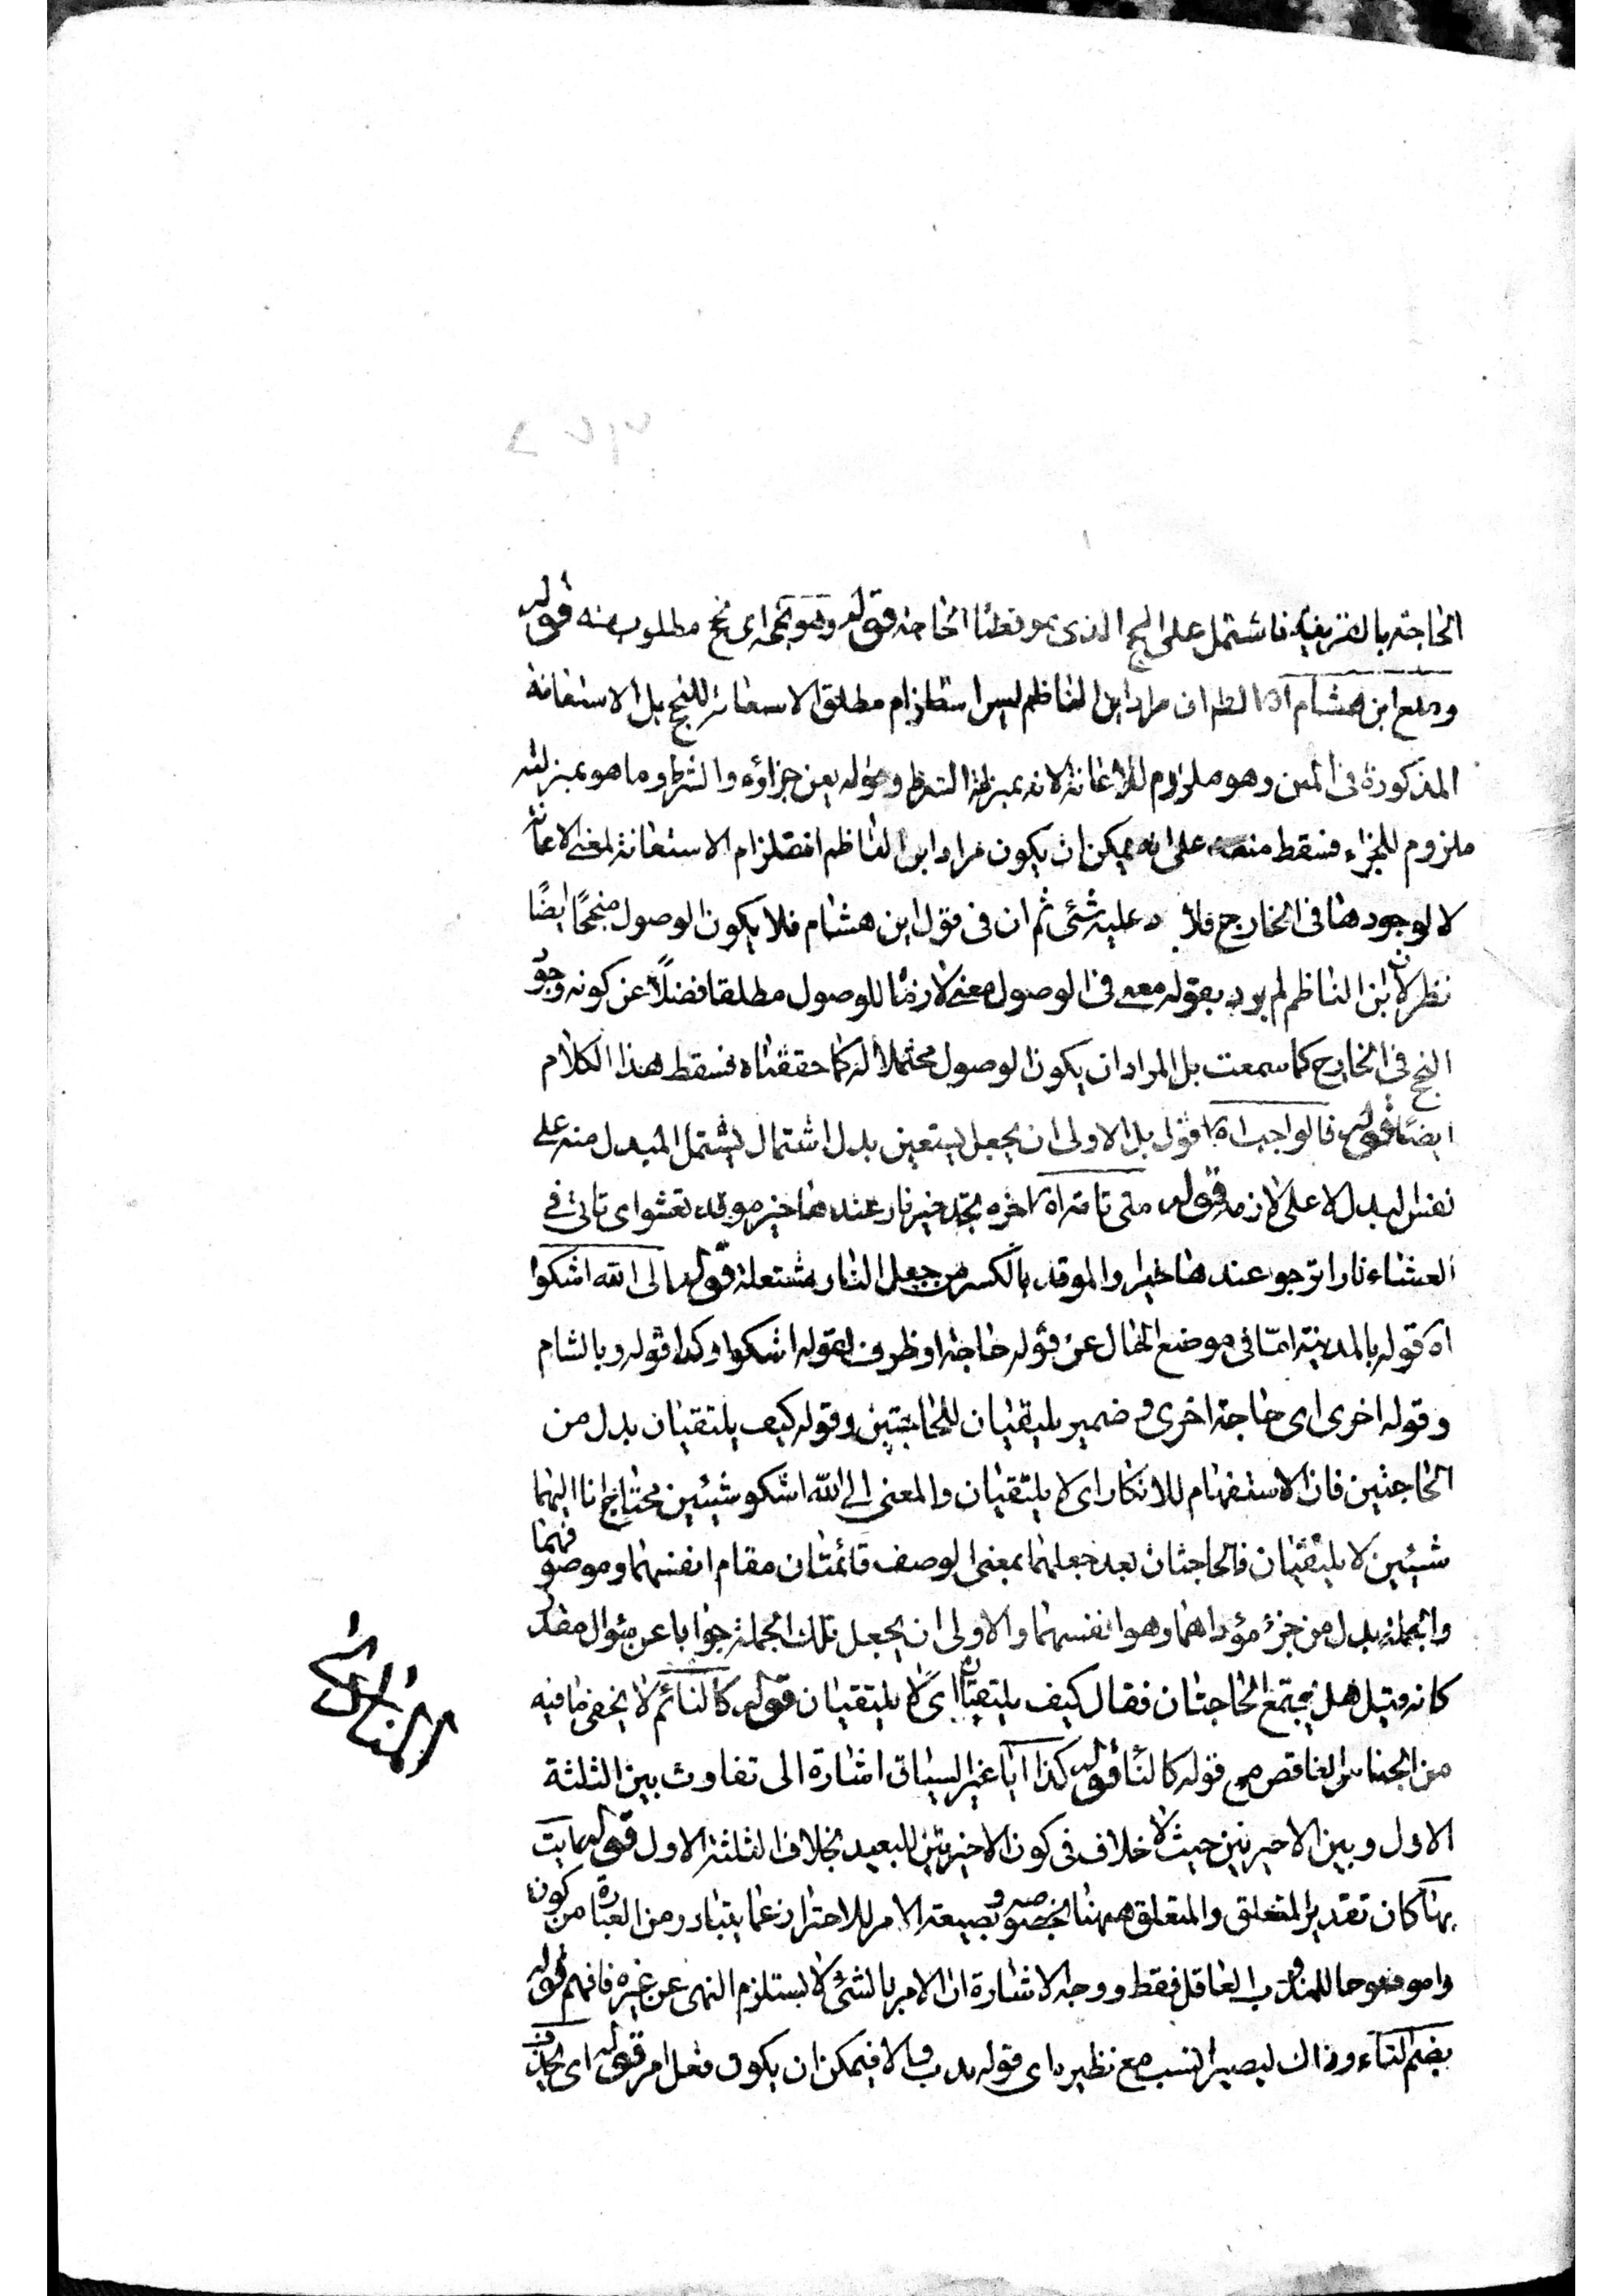 الحاجة بالقرينة فاشتمل على النجح الذي هو قضاء الحاجة قوله وهو نجحه اى نجح مطلوب منه قوله
ومنع ابن هشام اه الظ ان مراد ابن الناظم ليس استلزام مطلق الاستعانة للنجح بل الاستعانة
المذكورة فى المتن وهو ملزوم للاعانة لانه بمنزلة الشرط وقوله يعن جزاؤه والشرط وما هو بمنزلته
ملزوم للجزاء فسقط منعه على انه يمكن ان يكون مراد ابن الناظم استلزام الاستعانة لمعنى الاعانة
لا لوجودها فى الخارج فلا د عليه شئ ثم ان فى قول ابن هشام فلا يكون الوصول منجحًا ايضًا
نظر لان ابن الناظم لم يرد بقوله معنى فى الوصول معنى لازمًا للوصول مطلقا فضلاً عن كونه وجو
النجح فى الخارج كما سمعت بل المراد ان يكون الوصول محتملا له كما حققناه فسقط هذا الكلام
ايضًا قوله فالواجب اه اقول بل الاولى ان يجعل يستعين بدل اشتمال ليشتمل المبدل منه على
نفس البدل لا على لازمه قوله متى تاته اه اخره تجد خير نار عندها خير موقد تعشو اى تاتى فى
العشاء نارا ترجو عندها خيرا والموقد بالكسر من جعل النار مشتعلة قوله الى الله اشكوا
اه قوله بالمدينة امّا فى موضع الحال عن قوله حاجة او ظرف لقوله اشكوا وكذا قوله وبالشام
وقوله اخرى اى حاجة اخرى و ضمير يلتقيان للحاجتين وقوله كيف يلتقيان بدل من
الحاجتين فان الاستفهام للانكار اى لا يلتقيان والمعنى الى الله اشكو شيئين محتاج انا اليهما
شيئين لا يلتقيان فالحاجتان بعد جعلهما بمعنى الوصف قائمتان مقام انفسهما وموصوفهما
والجملة بدل من جزء مؤداهما وهو انفسهما والاولى ان يجعل تلك الجملة جوابا عن سؤال مقدر
كانه قيل هل يجتمع الحاجتان فقال كيف يلتقيان اى لا يلتقيان قوله كالنائم لا يخفى ما فيه
من الجناس الناقص مع قوله كالنّا قوله كذا ايا غير السياق اشارة الى تفاوت بين الثلثة
الاول وبين الاخيرتين حيث لا خلاف فى كون الاخيرتين للبعيد بخلاف الثلثة الاول قوله
بها كان تقدير المتعلق والمتعلق ههنا بخصوصه و بصيغة الامر للاحتراز عما يتبادر من العبارة من كون
وا موضوعا للمندوب العاقل فقط ووجه الاشارة ان الامر بالشئ لا يستلزم النهى عن غيره فافهم قوله
بضم التاء وذاك ليصير انسب مع نظيره اى قوله ندب والا فيمكن ان يكون فعل امر قوله اى بحذف
المنادى